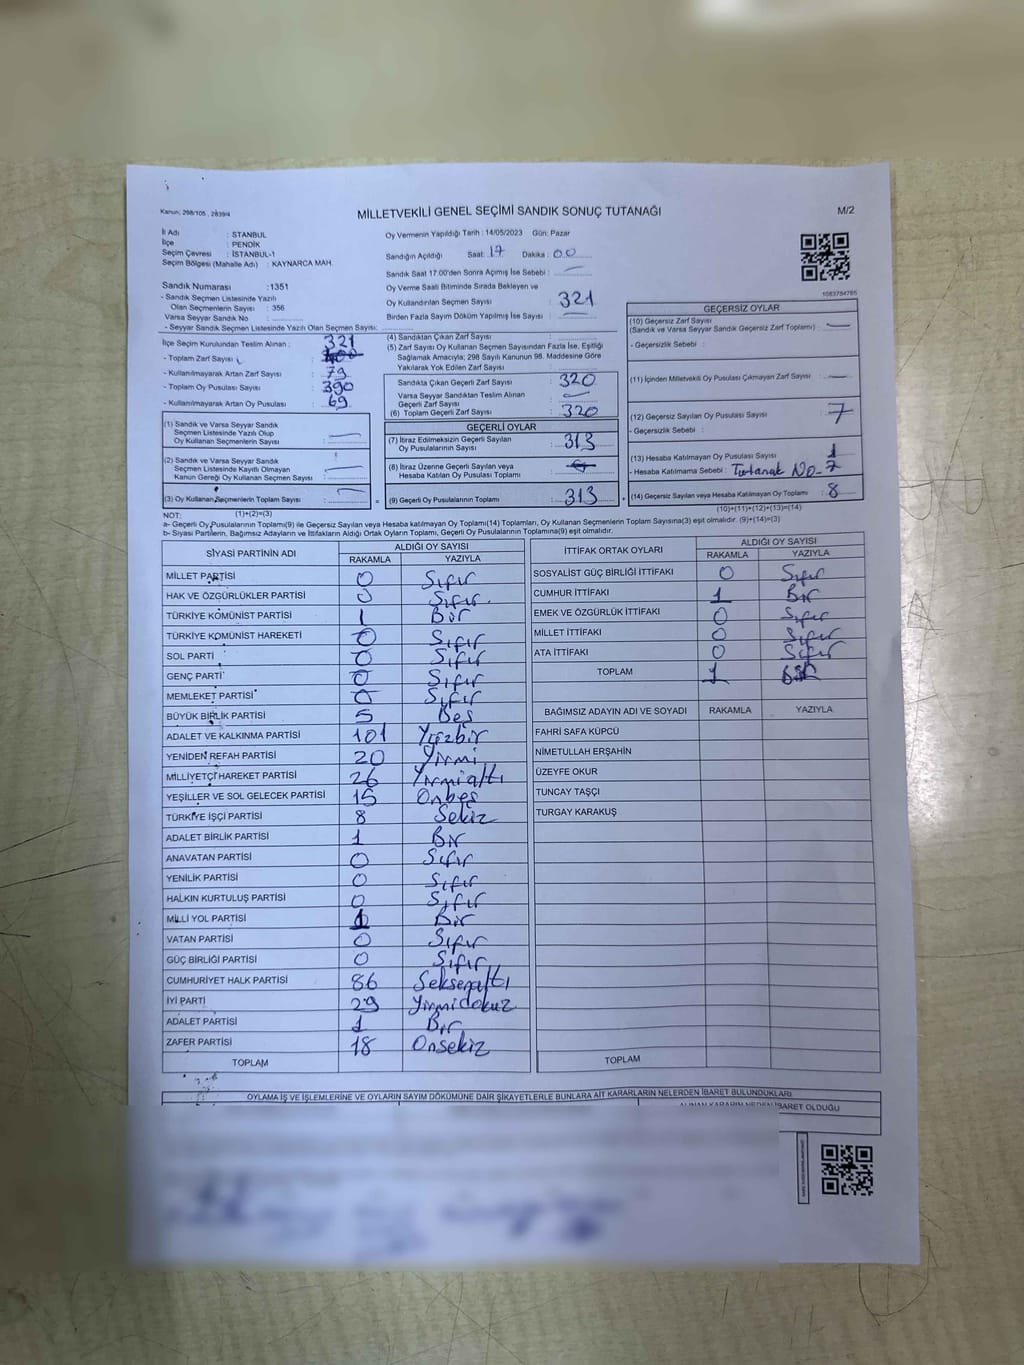 Kanun: 298/105 , 2839/4
MİLLETVEKİLİ GENEL SEÇİMİ SANDIK SONUÇ TUTANAĞI
M/2
İl Adı : STANBUL
İlçe : PENDİK
Seçim Çevresi : İSTANBUL-1
Seçim Bölgesi (Mahalle Adı) : KAYNARCA MAH.
Sandık Numarası :1351
- Sandık Seçmen Listesinde Yazılı
Olan Seçmenlerin Sayısı : 356
Varsa Seyyar Sandık No :
- Seyyar Sandık Seçmen Listesinde Yazılı Olan Seçmen Sayısı:
Oy Vermenin Yapıldığı Tarih : 14/05/2023 Gün: Pazar
Sandığın Açıldığı Saat: 17 Dakika : 00
Sandık Saat 17.00'den Sonra Açılmış İse Sebebi : —
Oy Verme Saati Bitiminde Sırada Bekleyen ve
Oy Kullandırılan Seçmen Sayısı : 321
Birden Fazla Sayım Döküm Yapılmış İse Sayısı : —
1083784765
İlçe Seçim Kurulundan Teslim Alınan : 321
- Toplam Zarf Sayısı : 400
- Kullanılmayarak Artan Zarf Sayısı : 79
- Toplam Oy Pusulası Sayısı : 390
- Kullanılmayarak Artan Oy Pusulası : 69
(1) Sandık ve Varsa Seyyar Sandık
Seçmen Listesinde Yazılı Olup
Oy Kullanan Seçmenlerin Sayısı : —
(2) Sandık ve Varsa Seyyar Sandık
Seçmen Listesinde Kayıtlı Olmayan
Kanun Gereği Oy Kullanan Seçmen Sayısı : —
(3) Oy Kullanan Seçmenlerin Toplam Sayısı : —
(4) Sandıktan Çıkan Zarf Sayısı :
(5) Zarf Sayısı Oy Kullanan Seçmen Sayısından Fazla İse, Eşitliği
Sağlamak Amacıyla; 298 Sayılı Kanunun 98. Maddesine Göre
Yakılarak Yok Edilen Zarf Sayısı :
Sandıkta Çıkan Geçerli Zarf Sayısı : 320
Varsa Seyyar Sandıktan Teslim Alınan
Geçerli Zarf Sayısı : —
(6) Toplam Geçerli Zarf Sayısı : 320
GEÇERLİ OYLAR
(7) İtiraz Edilmeksizin Geçerli Sayılan
Oy Pusulalarının Sayısı : 313
(8) İtiraz Üzerine Geçerli Sayılan veya
Hesaba Katılan Oy Pusulası Toplamı :
= (9) Geçerli Oy Pusulalarının Toplamı : 313
GEÇERSİZ OYLAR
(10) Geçersiz Zarf Sayısı
(Sandık ve Varsa Seyyar Sandık Geçersiz Zarf Toplamı) : —
- Geçersizlik Sebebi :
(11) İçinden Milletvekili Oy Pusulası Çıkmayan Zarf Sayısı : —
(12) Geçersiz Sayılan Oy Pusulası Sayısı : 7
- Geçersizlik Sebebi :
(13) Hesaba Katılmayan Oy Pusulası Sayısı : 1
- Hesaba Katılmama Sebebi : Tutanak No-7
+ (14) Geçersiz Sayılan veya Hesaba Katılmayan Oy Toplamı : 8
NOT: (1)+(2)=(3)
(10)+(11)+(12)+(13)=(14)
a- Geçerli Oy Pusulalarının Toplamı(9) ile Geçersiz Sayılan veya Hesaba katılmayan Oy Toplamı(14) Toplamları, Oy Kullanan Seçmenlerin Toplam Sayısına(3) eşit olmalıdır. (9)+(14)=(3)
b- Siyasi Partilerin, Bağımsız Adayların ve İttifakların Aldığı Ortak Oyların Toplamı, Geçerli Oy Pusulalarının Toplamına(9) eşit olmalıdır.
SİYASİ PARTİNİN ADI ALDIĞI OY SAYISI
RAKAMLA YAZIYLA
MİLLET PARTİSİ 0 Sıfır
HAK VE ÖZGÜRLÜKLER PARTİSİ 0 Sıfır
TÜRKİYE KOMÜNİST PARTİSİ 1 Bir
TÜRKİYE KOMÜNİST HAREKETİ 0 Sıfır
SOL PARTİ 0 Sıfır
GENÇ PARTİ 0 Sıfır
MEMLEKET PARTİSİ 0 Sıfır
BÜYÜK BİRLİK PARTİSİ 5 Beş
ADALET VE KALKINMA PARTİSİ 101 Yüzbir
YENİDEN REFAH PARTİSİ 20 Yirmi
MİLLİYETÇİ HAREKET PARTİSİ 26 Yirmialtı
YEŞİLLER VE SOL GELECEK PARTİSİ 15 Onbeş
TÜRKİYE İŞÇİ PARTİSİ 8 Sekiz
ADALET BİRLİK PARTİSİ 1 Bir
ANAVATAN PARTİSİ 0 Sıfır
YENİLİK PARTİSİ 0 Sıfır
HALKIN KURTULUŞ PARTİSİ 0 Sıfır
MİLLİ YOL PARTİSİ 1 Bir
VATAN PARTİSİ 0 Sıfır
GÜÇ BİRLİĞİ PARTİSİ 0 Sıfır
CUMHURİYET HALK PARTİSİ 86 Seksenaltı
İYİ PARTİ 29 Yirmidokuz
ADALET PARTİSİ 1 Bir
ZAFER PARTİSİ 18 Onsekiz
TOPLAM
İTTİFAK ORTAK OYLARI ALDIĞI OY SAYISI
RAKAMLA YAZIYLA
SOSYALİST GÜÇ BİRLİĞİ İTTİFAKI 0 Sıfır
CUMHUR İTTİFAKI 1 Bir
EMEK VE ÖZGÜRLÜK İTTİFAKI 0 Sıfır
MİLLET İTTİFAKI 0 Sıfır
ATA İTTİFAKI 0 Sıfır
TOPLAM 1 BİR
BAĞIMSIZ ADAYIN ADI VE SOYADI RAKAMLA YAZIYLA
FAHRİ SAFA KÜPCÜ
NİMETULLAH ERŞAHİN
ÜZEYFE OKUR
TUNCAY TAŞÇI
TURGAY KARAKUŞ
TOPLAM
OYLAMA İŞ VE İŞLEMLERİNE VE OYLARIN SAYIM DÖKÜMÜNE DAİR ŞİKAYETLERLE BUNLARA AİT KARARLARIN NELERDEN İBARET BULUNDUKLARI
ALINAN KARARIN NEDEN İBARET OLDUĞU